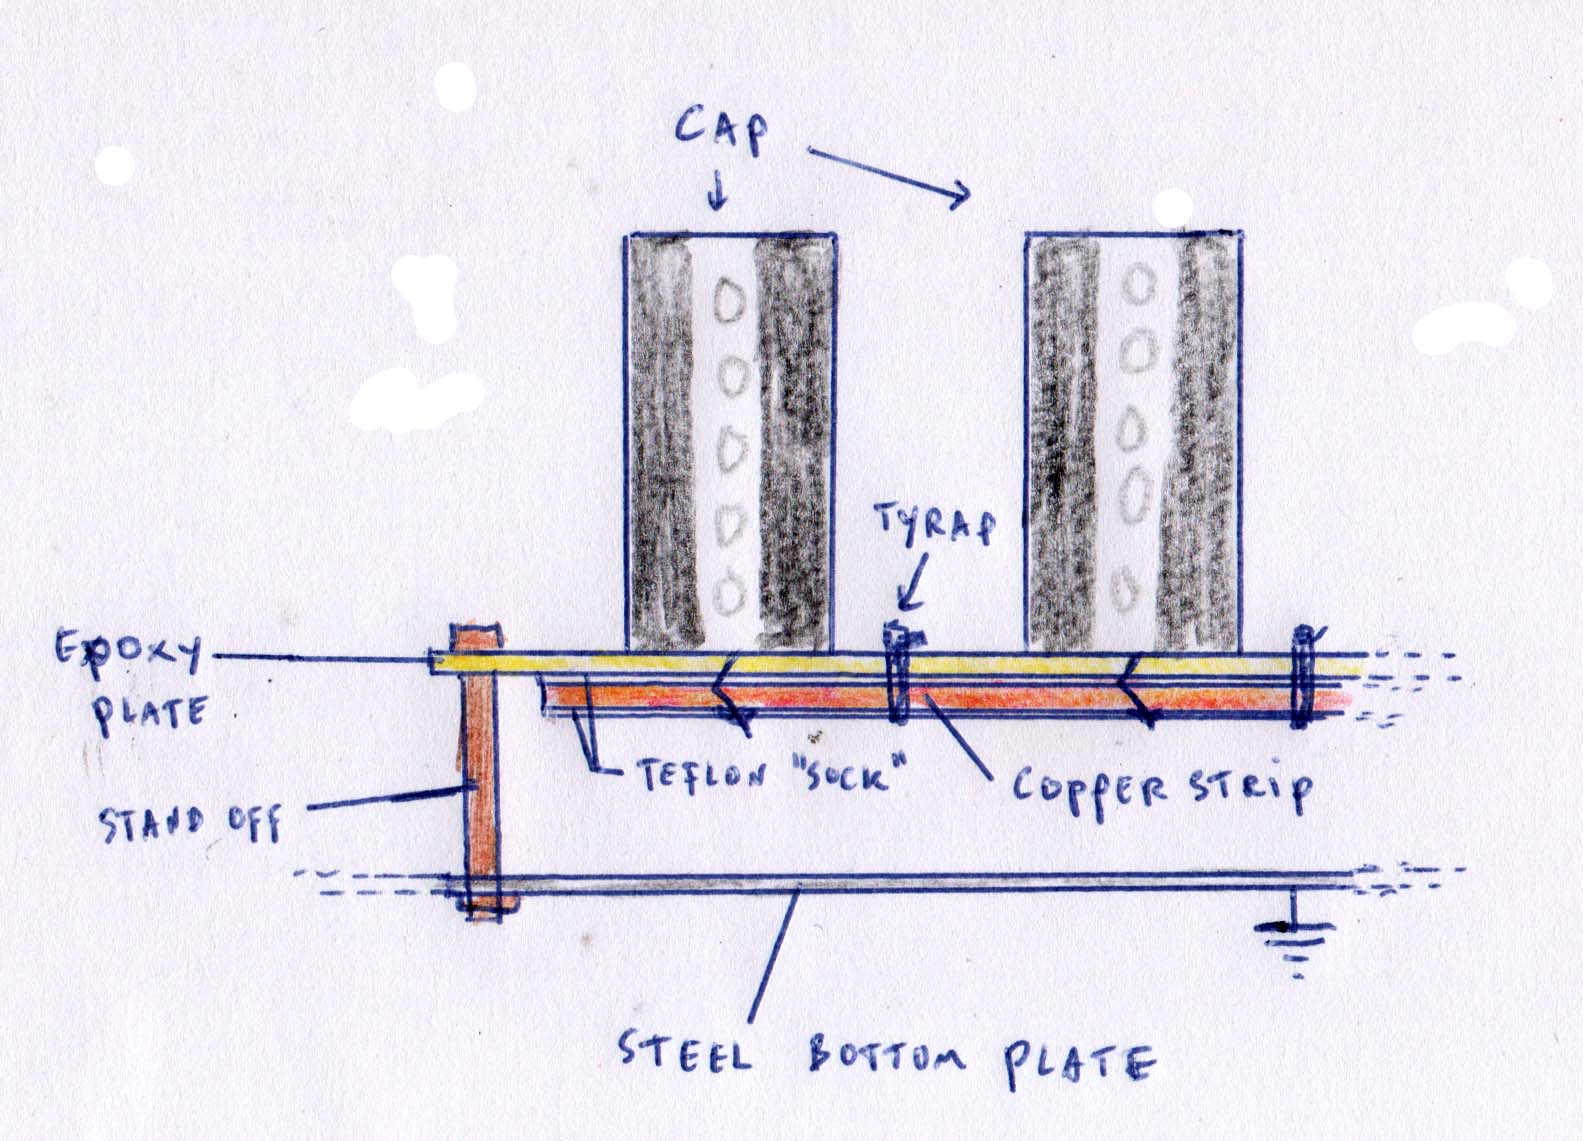 CAP
TYRAP
EPOXY
PLATE
TEFLON "SOCK"
COPPER STRIP
STAND OFF
STEEL BOTTOM PLATE